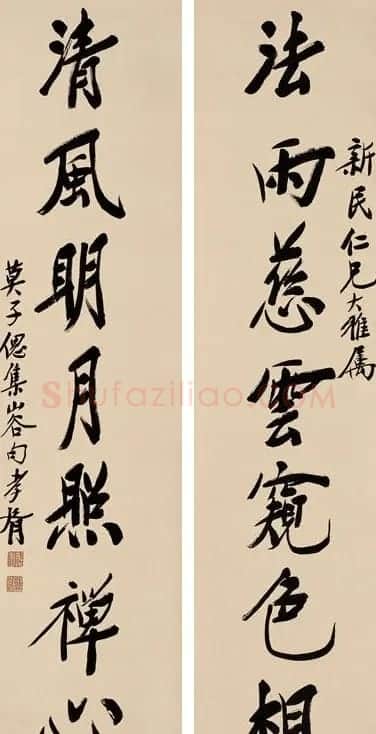 新民仁兄大雅属
法雨慈雲窺色相
清風明月照禪心
莫子偲集山谷句孝胥
Shufaziliao.COM